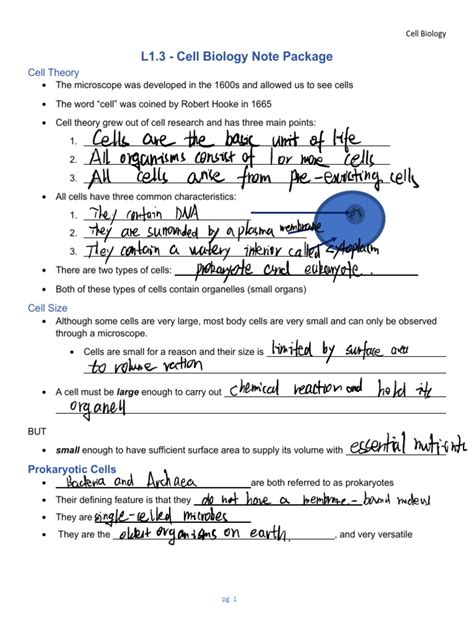 Cell Biology
L1.3 - Cell Biology Note Package
Cell Theory
• The microscope was developed in the 1600s and allowed us to see cells
• The word "cell" was coined by Robert Hooke in 1665
• Cell theory grew out of cell research and has three main points:
1. Cells are the basic unit of life
2. All organisms consist of 1 or more cells
3. All cells arise from pre-existing cells
• All cells have three common characteristics:
1. They contain DNA
2. They are surrounded by a plasma membrane
3. They contain a watery interior called cytoplasm
• There are two types of cells: prokaryote and eukaryote.
• Both of these types of cells contain organelles (small organs)
Cell Size
• Although some cells are very large, most body cells are very small and can only be observed
through a microscope.
• Cells are small for a reason and their size is limited by surface area
to volume
• A cell must be large enough to carry out chemical reaction and hold its
organell
BUT
• small enough to have sufficient surface area to supply its volume with essential nutrients
Prokaryotic Cells
• Bacteria and Archaea are both referred to as prokaryotes
• Their defining feature is that they do not have a membrane-bound
• They are single-celled microbes
• They are the oldest organisms on earth, and very versatile
pg. 1